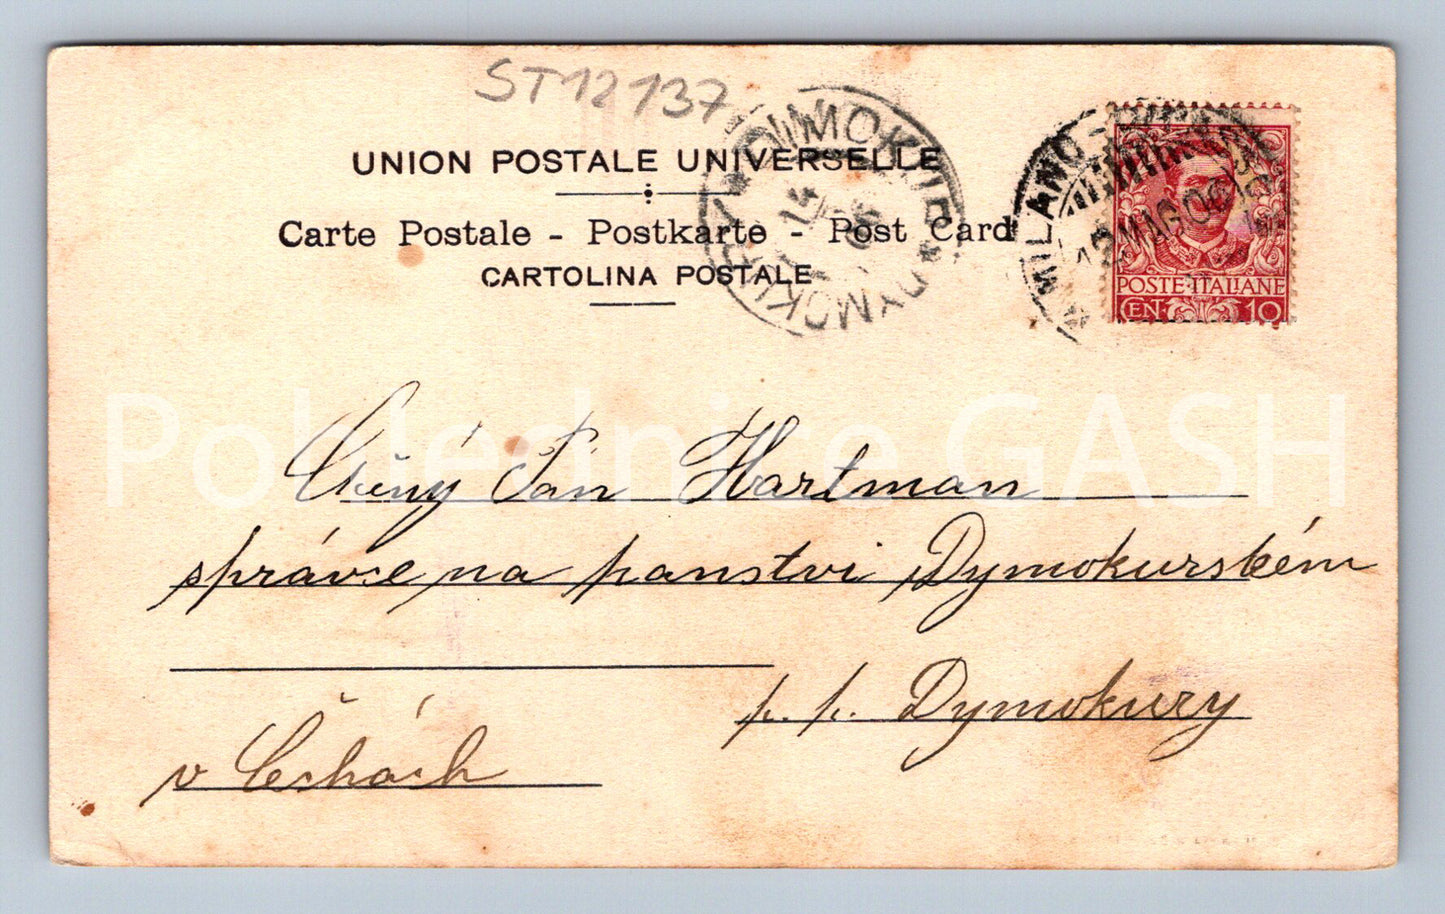 ST12137
UNION POSTALE UNIVERSELLE
Carte Postale - Postkarte - Post Card
CARTOLINA POSTALE
DIMOKUR * DYMOKURY *
14
06
* MILANO
12 MAG 06
POSTE ITALIANE
CEN. 10
Pohlednice GASH
Ctěný Pán Hartman
správce na panství Dymokurském
p. p. Dymokury
v Čechách